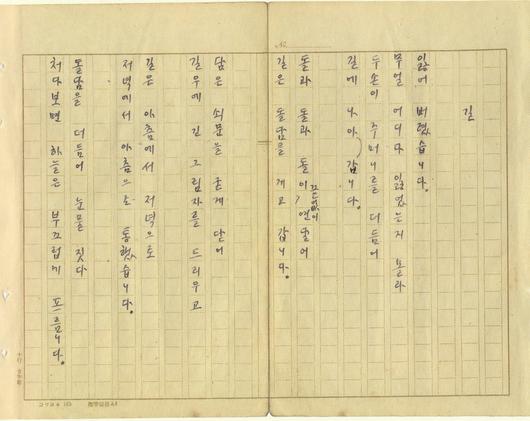 길
잃어 버렸습니다.
무얼 어디다 잃었는지 몰라
두손이 주머니를 더듬어
길에 나아갑니다.
돌과 돌과 돌이 끝없이 연달어
길은 돌담을 끼고 갑니다.
담은 쇠문을 굳게 닫어
길우에 긴 그림자를 드리우고
길은 아츰에서 저녁으로
저녁에서 아츰으로 통했습니다.
돌담을 더듬어 눈물 짓다
처다보면 하늘은 부끄럽게 프름니다.